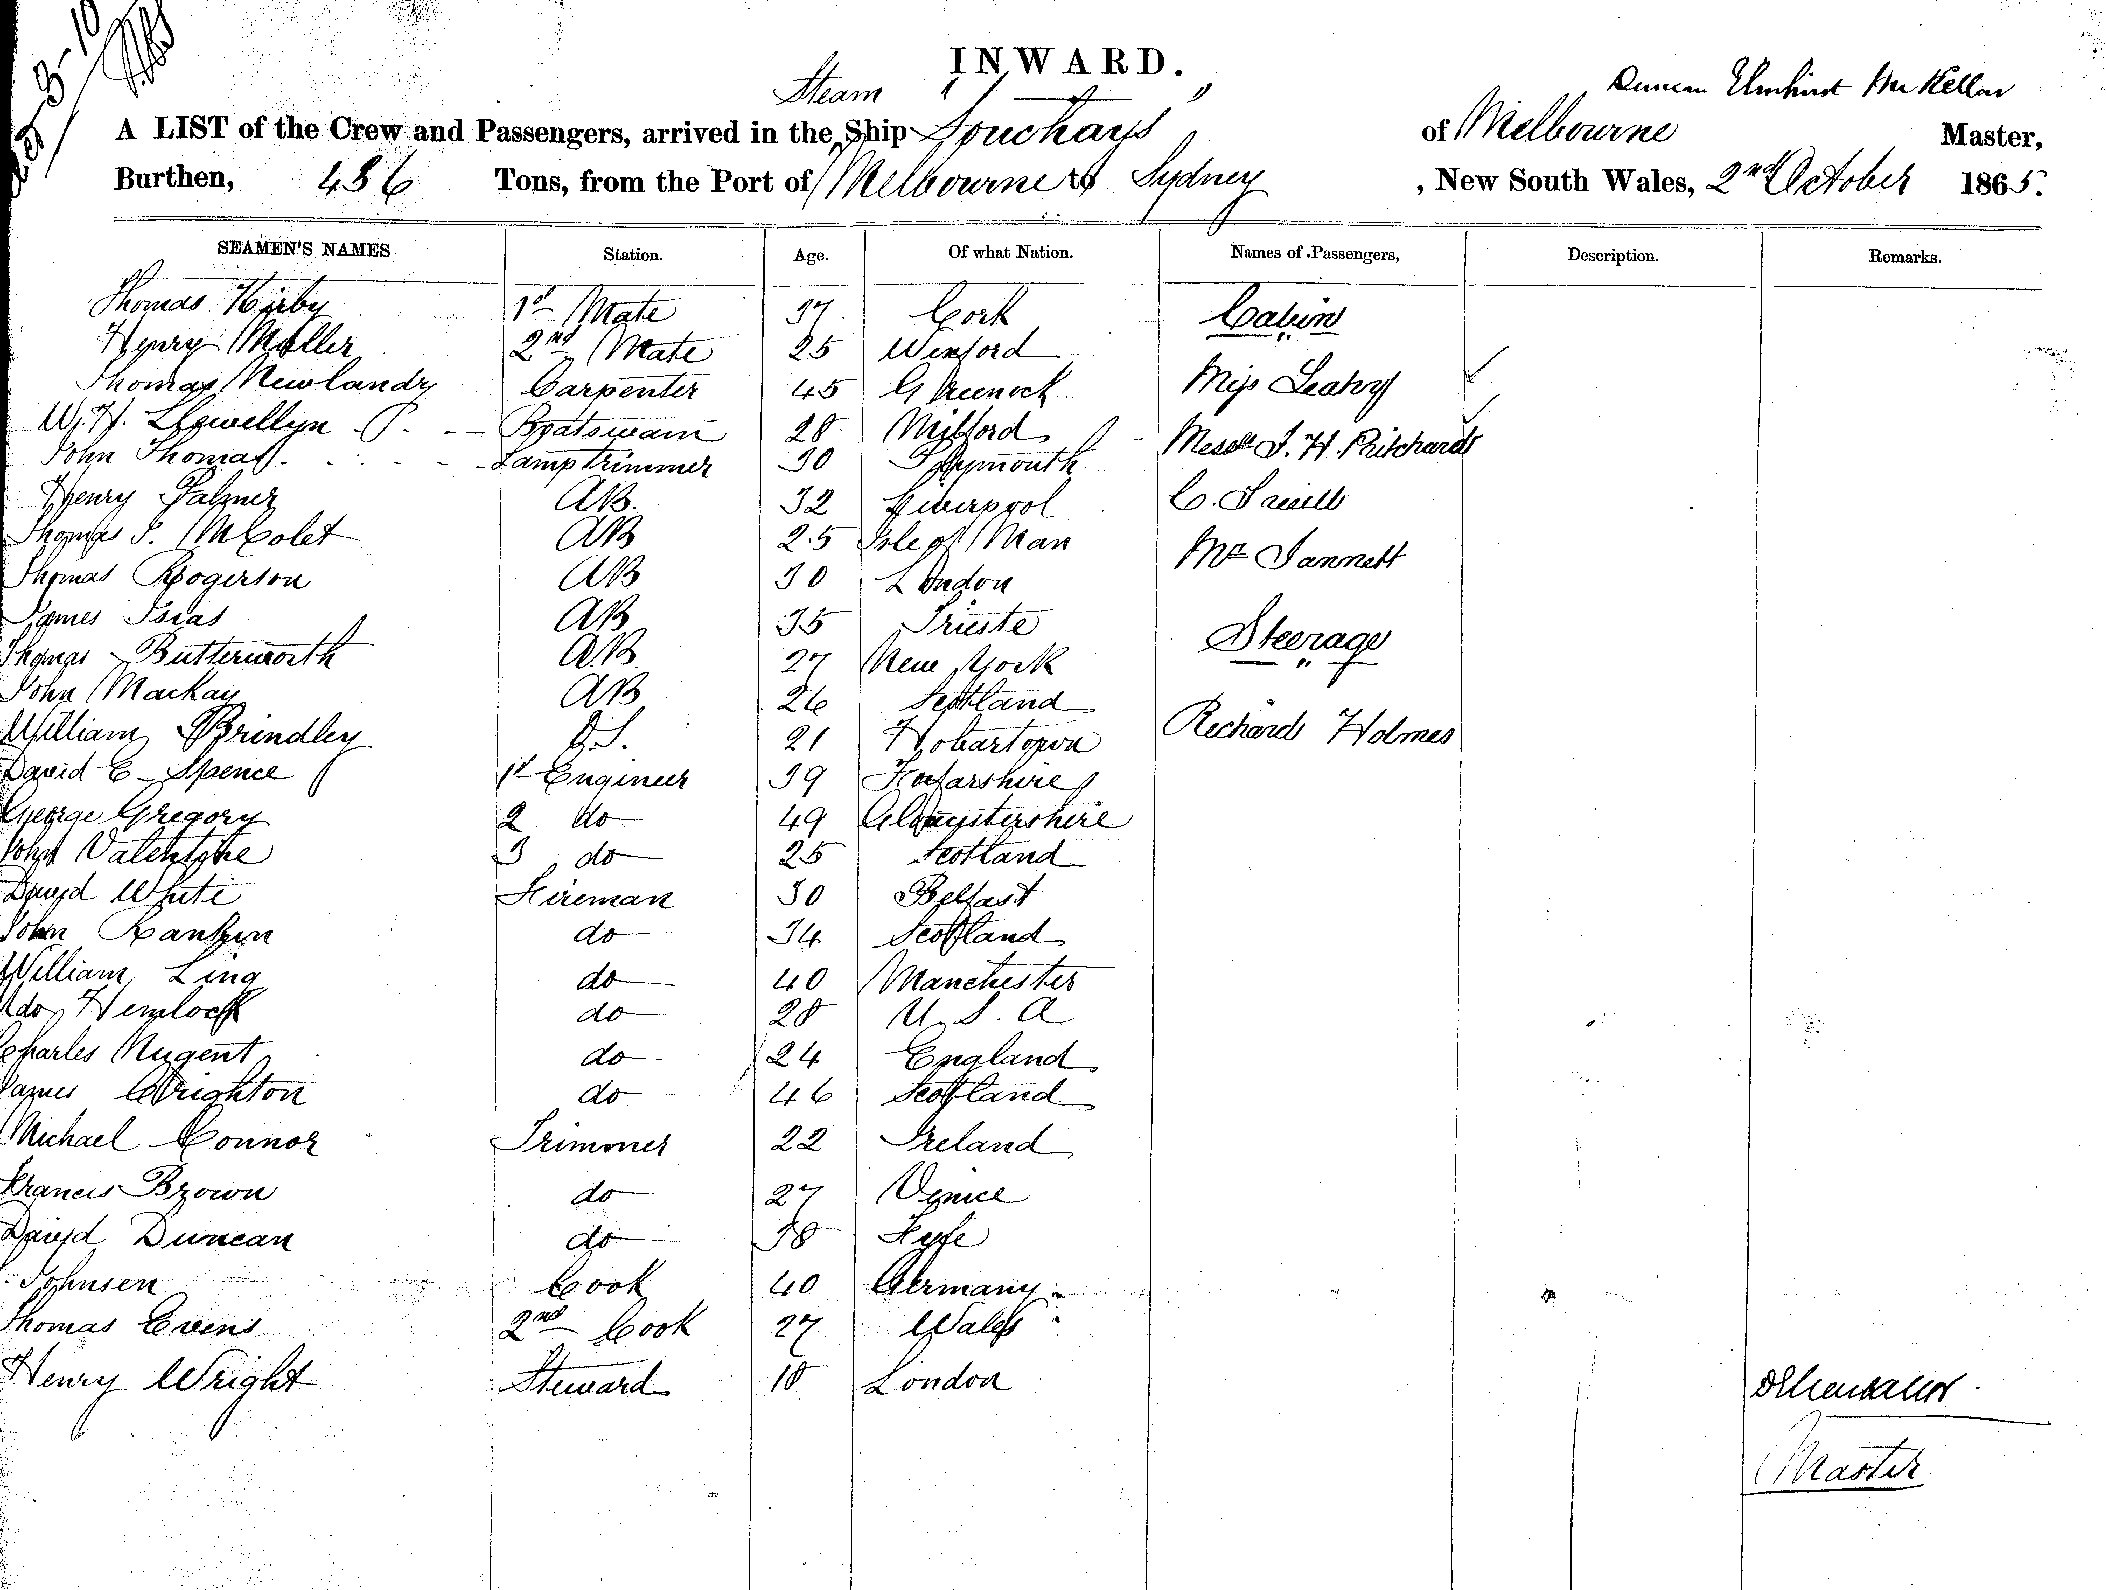 INWARD.
Duncan Elmhirst McKellar
Steam
A LIST of the Crew and Passengers, arrived in the Ship "Souchays" of Melbourne Master,
Burthen, 436 Tons, from the Port of Melbourne to Sydney , New South Wales, 2nd October 1865.
SEAMEN'S NAMES Station. Age. Of what Nation. Names of Passengers, Description. Remarks.
Thomas Kirby 1st Mate 37 Cork Cabin
Henry Moller 2nd Mate 25 Wexford
Thomas Newlandy Carpenter 45 Greenock Miss Leahy
W. H. Llewellyn P. Boatswain 28 Milford Messrs J. H. Pritchards
John Thomas Lamptrimmer 30 Plymouth
Henry Palmer AB. 32 Liverpool C.
Thomas AB 25 Isle of Man Mr
Thomas Rogerson AB 30 London
James Isias AB 35 Trieste Steerage
Thomas Butterworth A.B. 27 New York
John Mackay AB 26 Scotland
William Brindley O.S. 21 Hobartown Richard Holmes
David E Spence 1st Engineer 39 Forfarshire
George Gregory 2 do 49 Gloucestershire
John Valentine 3 do 25 Scotland
David White Fireman 30 Belfast
John Rankin do 34 Scotland
William Ling do 40 Manchester
Ado Hemlock do 28 U. S. A
Charles Nugent do 24 England
James Wrighton do 46 Scotland
Michael Connor Trimmer 22 Ireland
Francis Brown do 27 Venice
David Duncan do 38 Fyfe
Johnsen Cook 40 Germany
Thomas Evens 2nd Cook 27 Wales
Henry Wright Steward 18 London
DEMcKellar
Master